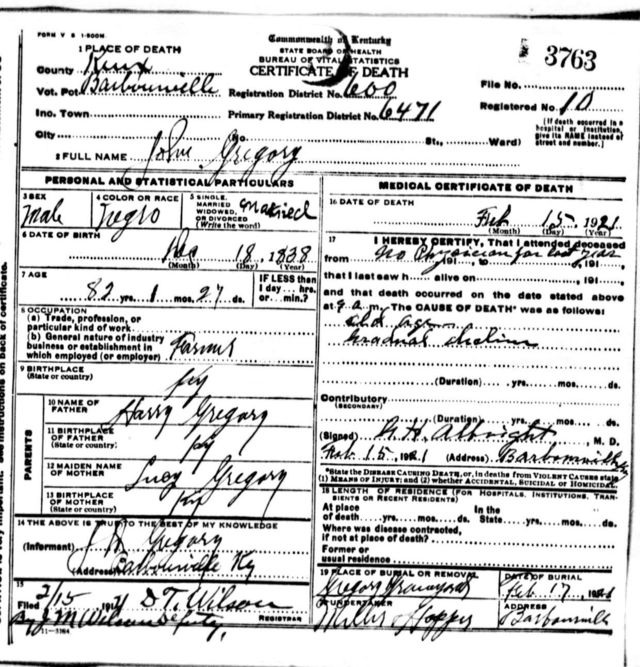 FORM V S 1-500M
Commonwealth of Kentucky
STATE BOARD OF HEALTH
BUREAU OF VITAL STATISTICS
CERTIFICATE OF DEATH
3763
1 PLACE OF DEATH
County Knox
Vot. Pct Barbourville
Registration District No. 600
File No.
Inc. Town
Primary Registration District No. 6471
Registered No. 10
City
No
St.,
Ward)
(If death occurred in a hospital or institution, give its NAME instead of street and number.)
2 FULL NAME John Gregory
PERSONAL AND STATISTICAL PARTICULARS
3 SEX
Male
4 COLOR OR RACE
Negro
5 SINGLE, MARRIED WIDOWED, OR DIVORCED (Write the word)
Married
6 DATE OF BIRTH
Dec 18, 1838
(Month) (Day) (Year)
7 AGE
82 yrs. 1 mos. 27 ds.
IF LESS than 1 day... hrs. or... min.?
8 OCCUPATION
(a) Trade, profession, or particular kind of work
(b) General nature of industry business or establishment in which employed (or employer)
Farmer
9 BIRTHPLACE
(State or country)
Ky
PARENTS
10 NAME OF FATHER
Harry Gregory
11 BIRTHPLACE OF FATHER
(State or country)
Ky
12 MAIDEN NAME OF MOTHER
Lucy Gregory
13 BIRTHPLACE OF MOTHER
(State or country)
Ky
14 THE ABOVE IS TRUE TO THE BEST OF MY KNOWLEDGE
(Informant) Gregory
(Address) Barbourville Ky
15
Filed 2/15 1921 D T. Wilson
REGISTRAR
By J M Wilson Deputy,
11-3184
MEDICAL CERTIFICATE OF DEATH
16 DATE OF DEATH
Feb 15, 1921
(Month) (Day) (Year)
17 I HEREBY CERTIFY, That I attended deceased
from No Physician for last year
191 , to , 191 ,
that I last saw h alive on , 191 ,
and that death occurred on the date stated above
at 9 a. m. The CAUSE OF DEATH* was as follows:
old age
gradual decline
(Duration) yrs. mos. ds.
Contributory
(SECONDARY)
(Duration) yrs. mos. ds.
(Signed) Albright, M. D.
Feb 15, 1921 (Address) Barbourville Ky
*State the DISEASE CAUSING DEATH, or, in deaths from VIOLENT CAUSES state (1) MEANS OF INJURY; and (2) whether ACCIDENTAL, SUICIDAL or HOMICIDAL.
18 LENGTH OF RESIDENCE (FOR HOSPITALS, INSTITUTIONS, TRANSIENTS OR RECENT RESIDENTS)
At place of death yrs. mos. ds.
In the State yrs. mos. ds.
Where was disease contracted, if not at place of death?
Former or usual residence
19 PLACE OF BURIAL OR REMOVAL
Gregory Graveyard
DATE OF BURIAL
Feb 17, 1921
20 UNDERTAKER
Miller Hopper
ADDRESS
Barbourville